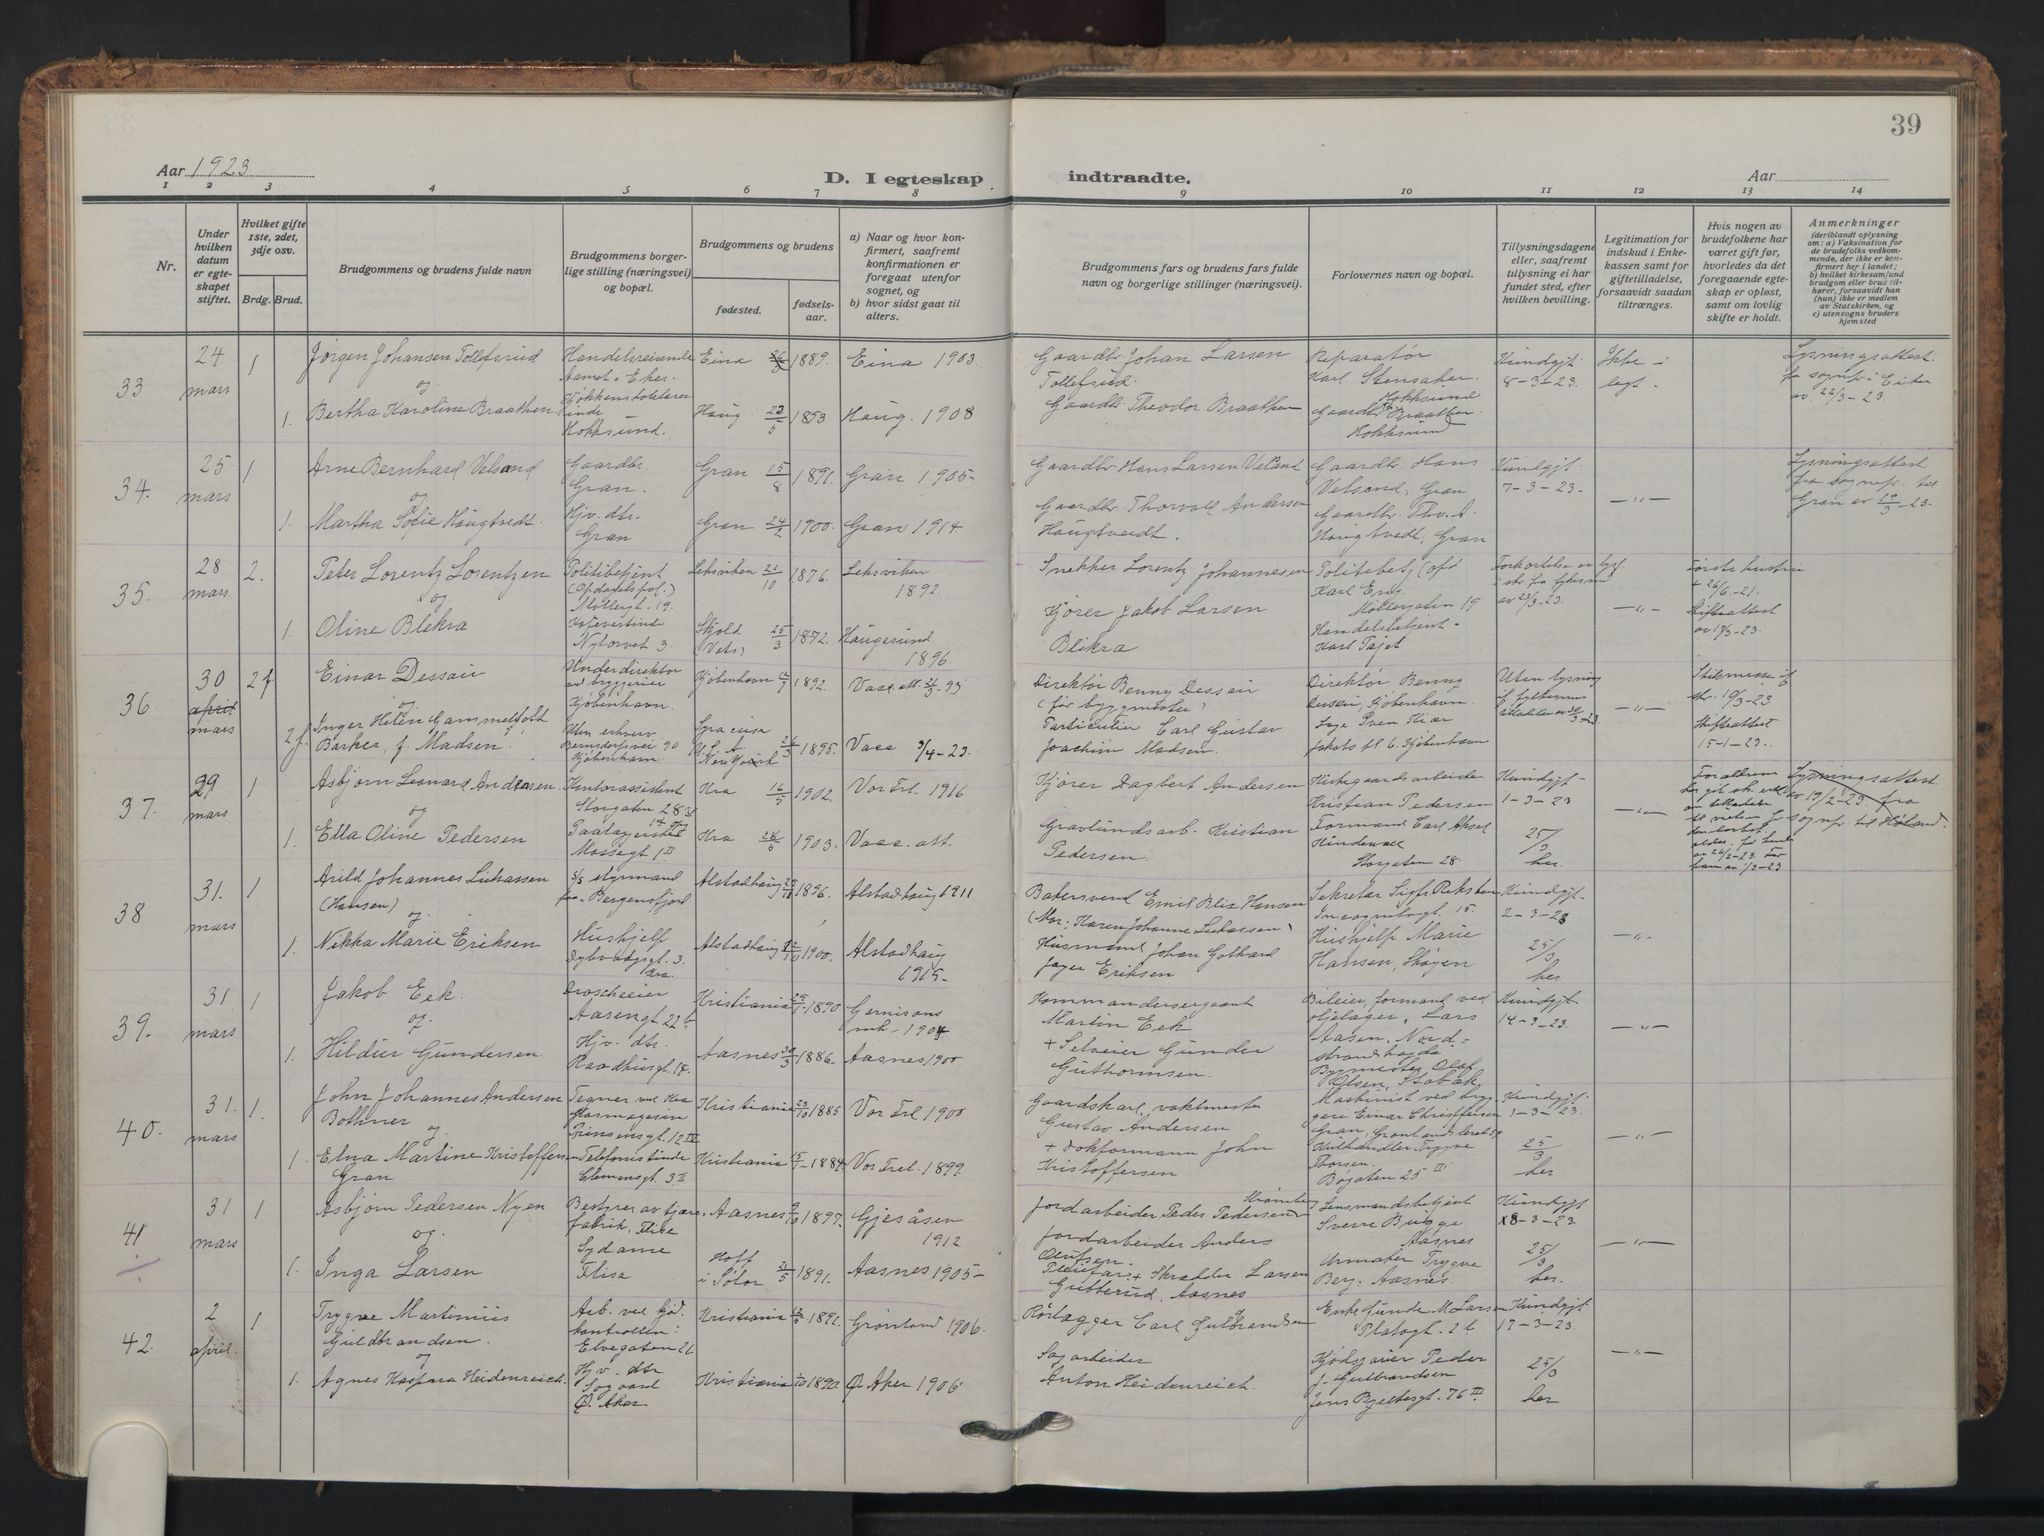 39
Aar 1923
D. I egteskap indtraadte.
Aar
1 2 3 4 5 6 7 8 9 10 11 12 13 14
Nr.
Under hvilken datum er egteskapet stiftet.
Hvilket gifte 1ste, 2det, 3dje osv.
Brdg. Brud.
Brudgommens og brudens fulde navn
Brudgommens borgerlige stilling (næringsvei) og bopæl.
Brudgommens og brudens
fødested.
fødselsaar.
a) Naar og hvor konfirmert, saafremt konfirmationen er foregaat utenfor sognet, og
b) hvor sidst gaat til alters.
Brudgommens fars og brudens fars fulde navn og borgerlige stillinger (næringsvei).
Forlovernes navn og bopæl.
Tillysningsdagene eller, saafremt tillysning ei har fundet sted, efter hvilken bevilling.
Legitimation for indskud i Enkekassen samt for giftetilladelse, forsaavidt saadan tiltrænges.
Hvis nogen av brudefolkene har været gift før, hvorledes da det foregaaende egteskap er opløst, samt om lovlig skifte er holdt.
Anmerkninger
(deriblandt oplysning om: a) Vaksination for de brudefolks vedkommende, der ikke er konfirmert her i landet; b) hvilket kirkesamfund brudgom eller brud tilhører, forsaavidt han (hun) ikke er medlem av Statskirken, og c) utensogns bruders hjemsted
33
24 mars
1
Jørgen Johansen Tollefsrud
og
1. Bertha Karoline Braathen
Handelsreisende
Hokksund.
Eina 26/8 1889. Eina 1903.
Haug 22/5 1853 Haug. 1908
Gaardbr. Johan Larsen
Tollefsrud.
Gaardbr. Theodor Braathen
Reparatør
Karl Stensaker
Hokksund
Gaardbr. Braathen
Hokksund
Kundgjt.
8-3-23.
Ikke
legt.
Lysningsattest
fra sognepr. i Eiker
av 22/3-23.
34.
25 mars
1
Arne Bernhard Velsand
og
1. Martha Sofie Haugtvedt.
Gaardbr.
Gran.
Hjv. dtr.
Gran
Gran 15/8 1891. Gran 1905-
Gran 24/2 1900. Gran 1914
Gaardbr. Hans Larsen Velsand
Gaardbr. Thorvall Andersen
Haugtveidt.
Gaardbr. Hans
Velsand, Gran
Gaardbr. Thv. A.
Haugtvedt, Gran
Kundgjt.
7-3-23.
-"-
Lysningsattest
fra sognepr. til
Gran av 19/3-23.
35.
28 mars
2.
Peter Lorentz Lorentzen
og
1. Oline Blekra
Politibetjent
(Opdagelsespol.)
Møllergt. 19.
Kafevertinde
Nytorvet 3.
Leksviken 21/10 1876. Leksviken
1892.
Skjold
(Vats) 25/3 1872. Haugesund
1896.
Snekker Lorentz Johannesen
Kjører Jakob Larsen
Blikra
Politibetj (opd
Karl Eng
Møllergaten 19
Handelsbetjent
Karl Tajet
av 23/3-23.
-"-
Første hustru
+ 26/6-21.
Skifteattest
av 17/3-23.
36
30 april mars
2 f
Einar Dessau
og
2 f. Inger Helen Gammeltoft
Barker, f. Madsen.
Underdirektør
ved bryggerier
Kjøbenhavn.
Uten erhverv
Bernsdorfsvei 90
Kjøbenhavn.
Kjøbenhavn 12/9 1892.
Syracuse
U.S.A
New York 26/3 1895.
Vacc 3/4-23.
Direktør Benny Dessau
(før bygmester)
Particulier Carl Gustav
Joachim Madsen.
Direktør Benny
Dessau, Kjøbenhavn.
Uten lysning
-"-
Skifteattest
15-1-23.
37.
29 mars
1
Asbjørn Leonard Andersen
og
1. Ella Oline Pedersen
Kontorassistent
Storgaten 28
Mossegt 1 II
Kra 16/5 1902. Vor Frl. 1916
Kra 28/6 1903. Vacc. att.
Kjører Dagbert Andersen
Gravlundsarb. Kristian
Pedersen.
Kirkegaardsarbeider
Kristian Pedersen
Formand Carl Aksel
Hindevall
Storgaten 28.
Kundgjt-
1-3-23
25/3
her.
-"-
Lysningsattest
av 19/2-23. fra
sognepr. til Høland.
38
31. mars
1
Arild Johannes Lukassen
(Hansen)
og
1. Nikka Marie Eriksen
s/s styrmand
paa Bergensfjord
Hushjelp
Dybvadsgt. 3.
Kra.
Alstadhaug 1896. Alstadhaug 1911
Alstadhaug 1900. Alstadhaug
1915-
Bakersvend Emil Blix Hansen
(Mor: Karen Johanne Lukassen)
Husmand Johan Gothard
Jager Eriksen
Sekretær Sigfr. Riksten
Incognitogt. 15.
Hushjelp Marie
Hansen, Skøyen
Kundgjt-
2-3-23
25/3
her
-"-
39.
31 mars
1
Jakob Eek.
og
1. Hildur Gundersen
Droscheeier
Aasengt 22 b
Hjv. dtr.
Raadhusgt. 18.
Kristiania 29/1 1890 Garnisons
mh. 1904
Aasnes 30/3 1886. Aasnes 1900
Kommandersergeant
Martin Eek
+ Selveier Gunder
Guthormsen.
Bileier, formand ved
oljelager, Lars
Aasen, Nord-
strandhøgda
Bygmester Olaf
Olsen, Stabæk
Kundgjt-
14-3-23.
-"-
40.
31. mars
1.
John Johannes Andersen
Bothner
og
1. Elna Martine Kristoffersen
Gran
Tegner ved Kra
Gasmagasin
Prinsensgt. 12 IV
Telefonistinde
Clemensgt. 3 II
Kristiania 23/10 1885 Vor Frl 1900
Kristiania 15/7-1884 Vor Frel. 1899.
Gaardskarl, vaktmester
Gustav Andersen
+ Dokformann John
Kristoffersen
Maskinist ved bryg-
geri Einar Christffersen
Gran, Grønlandsleret 19
Kulhandler Trygve
Thorsen.
Bogaten 25 II
Kundgjt.
1-3-23.
25/3
her
-"-
41
31 mars
1
Asbjørn Pedersen Nyen
og.
1. Inga Larsen
Bestyrer av tjære-
fabrik, Flisa
Sydame
Flisa
Aasnes 9/10 1897. Gjesåsen
1912
Hoff
i Solør 31/5 1891. Aasnes 1905-
Jordarbeider Peder Pedersen
Jordarbeider Anders
Olufsen.
Pleiefar: + Skrædder Larsen
Gubberud, Aasnes
Lensmandsbetjent
Sverre Bugge
Aasnes
Urmaker Trygve
Berg. Aasnes.
Kundgjt
18-3-23.
25/3
her.
-"-
42.
2 april
1
Trygve Martinius
Guldbrandsen.
og
1. Agnes Kaspara Heidenreich.
Arb. ved kjød-
kontrollen:
Elvegaten 26
Hjv. dtr
Sogaard
Ø. Aker
Kristiania 12/5 1891. Grønland 1906.
Kristiania 1/10 1890. Ø. Aker 1906
Rørlægger Carl Gulbrandsen
Sagarbeider
Anton Heidenreich.
Enke Gunde M. Larsen
Platogt. 26
Peder
J. Gulbrandsen
Jens Bjelkesgt. 76 III
Kundgjt
17-3-23.
25/3
her
-"-